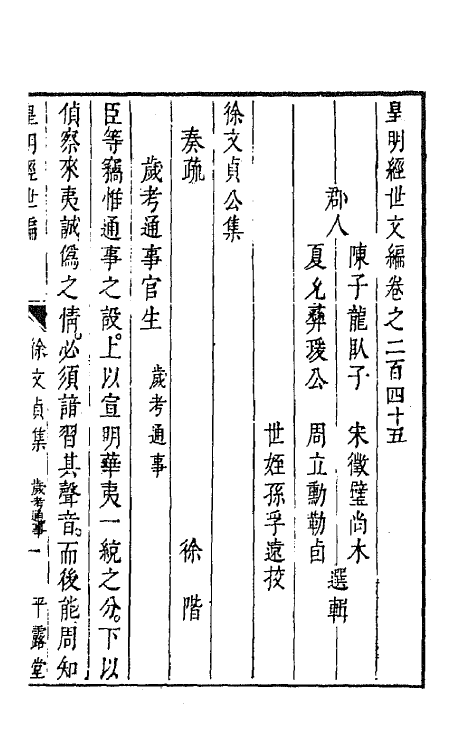 皇明經世文編卷之二百四十五
郡人
陳子龍臥子 宋徵璧尚木
夏允彝瑗公 周立勳勒卣
選輯
世姪孫孚遠挍
徐文貞公集
奏疏 徐階
歲考通事官生 歲考通事
臣等竊惟通事之設。上以宣明華夷一統之分。下以
偵察來夷誠偽之情。必須諳習其聲音。而後能周知
皇明經世編 徐文貞集 歲考通事 一 平露堂